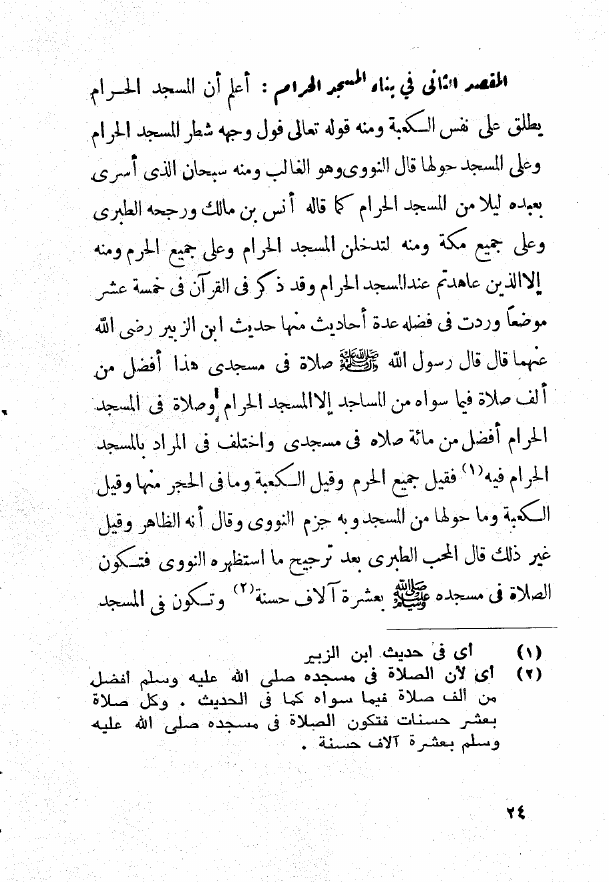 المقصد الثانى في بناء المسجد الحرام : أعلم أن المسجد الحرام
يطلق على نفس الكعبة ومنه قوله تعالى فول وجهه شطر المسجد الحرام
وعلى المسجد حولها قال النووى وهو الغالب ومنه سبحان الذى أسرى
بعبده ليلا من المسجد الحرام كما قاله أنس بن مالك ورجحه الطبرى
وعلى جميع مكة ومنه لتدخلن المسجد الحرام وعلى جميع الحرم ومنه
إلا الذين عاهدتم عند المسجد الحرام وقد ذكر فى القرآن فى خمسة عشر
موضعاً وردت فى فضله عدة أحاديث منها حديث ابن الزبير رضى الله
عنهما قال قال رسول الله ﷺ صلاة فى مسجدى هذا أفضل من
ألف صلاة فيما سواه من المساجد إلا المسجد الحرام وصلاة فى المسجد
الحرام أفضل من مائة صلاه فى مسجدى واختلف فى المراد بالمسجد
الحرام فيه (١) فقيل جميع الحرم وقيل الكعبة وما فى الحجر منها وقيل
الكعبة وما حولها من المسجد وبه جزم النووى وقال أنه الظاهر وقيل
غير ذلك قال المحب الطبرى بعد ترجيح ما استظهره النووى فتكون
الصلاة فى مسجده ﷺ بعشرة آلاف حسنة (٢) وتكون فى المسجد
(١) أى فى حديث ابن الزبير
(٢) أى لأن الصلاة فى مسجده صلى الله عليه وسلم أفضل
من ألف صلاة فيما سواه كما فى الحديث . وكل صلاة
بعشر حسنات فتكون الصلاة فى مسجده صلى الله عليه
وسلم بعشرة آلاف حسنة .
٢٤